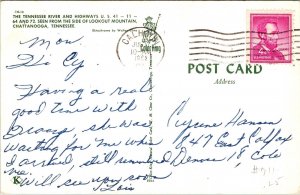 THE TENNESSEE RIVER AND HIGHWAYS U. S. 41 — 11 —
64 AND 72, SEEN FROM THE SIDE OF LOOKOUT MOUNTAIN,
CHATTANOOGA, TENNESSEE
POST CARD
Address
Mon
Hi Cy.
Having a real
good time with
she was
waiting for me when
I arrived, still
Will see you soon
Lois
Cyrene Hanson
847 East Colfax
Denver 18 Colo
K